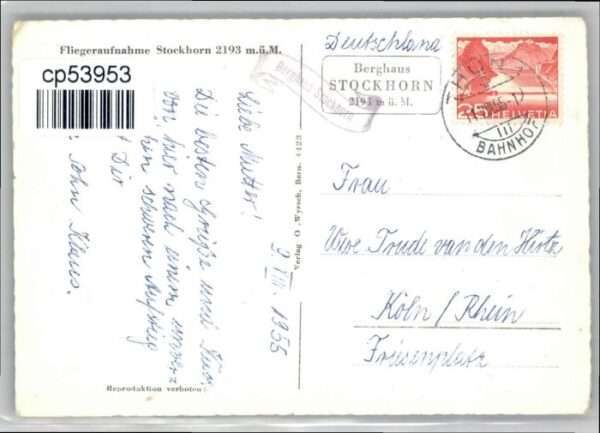 Fliegeraufnahme Stockhorn 2193 m.ü.M.
cp53953
Deutschland
Berghaus
STOCKHORN
2193 m ü. M.
Berghaus Stockhorn
25 HELVETIA
BAHNHOF
9. VIII. 1955
Liebe Mutter!
Die besten Grüße und
von hier nach einem
schweren Aufstieg
Dir
Sohn Klaus.
Verlag O. Wyrsch, Bern. 4123
Frau
Wwe Trude van den Hirtz
Köln / Rhein
Friesenplatz
Reproduktion verboten